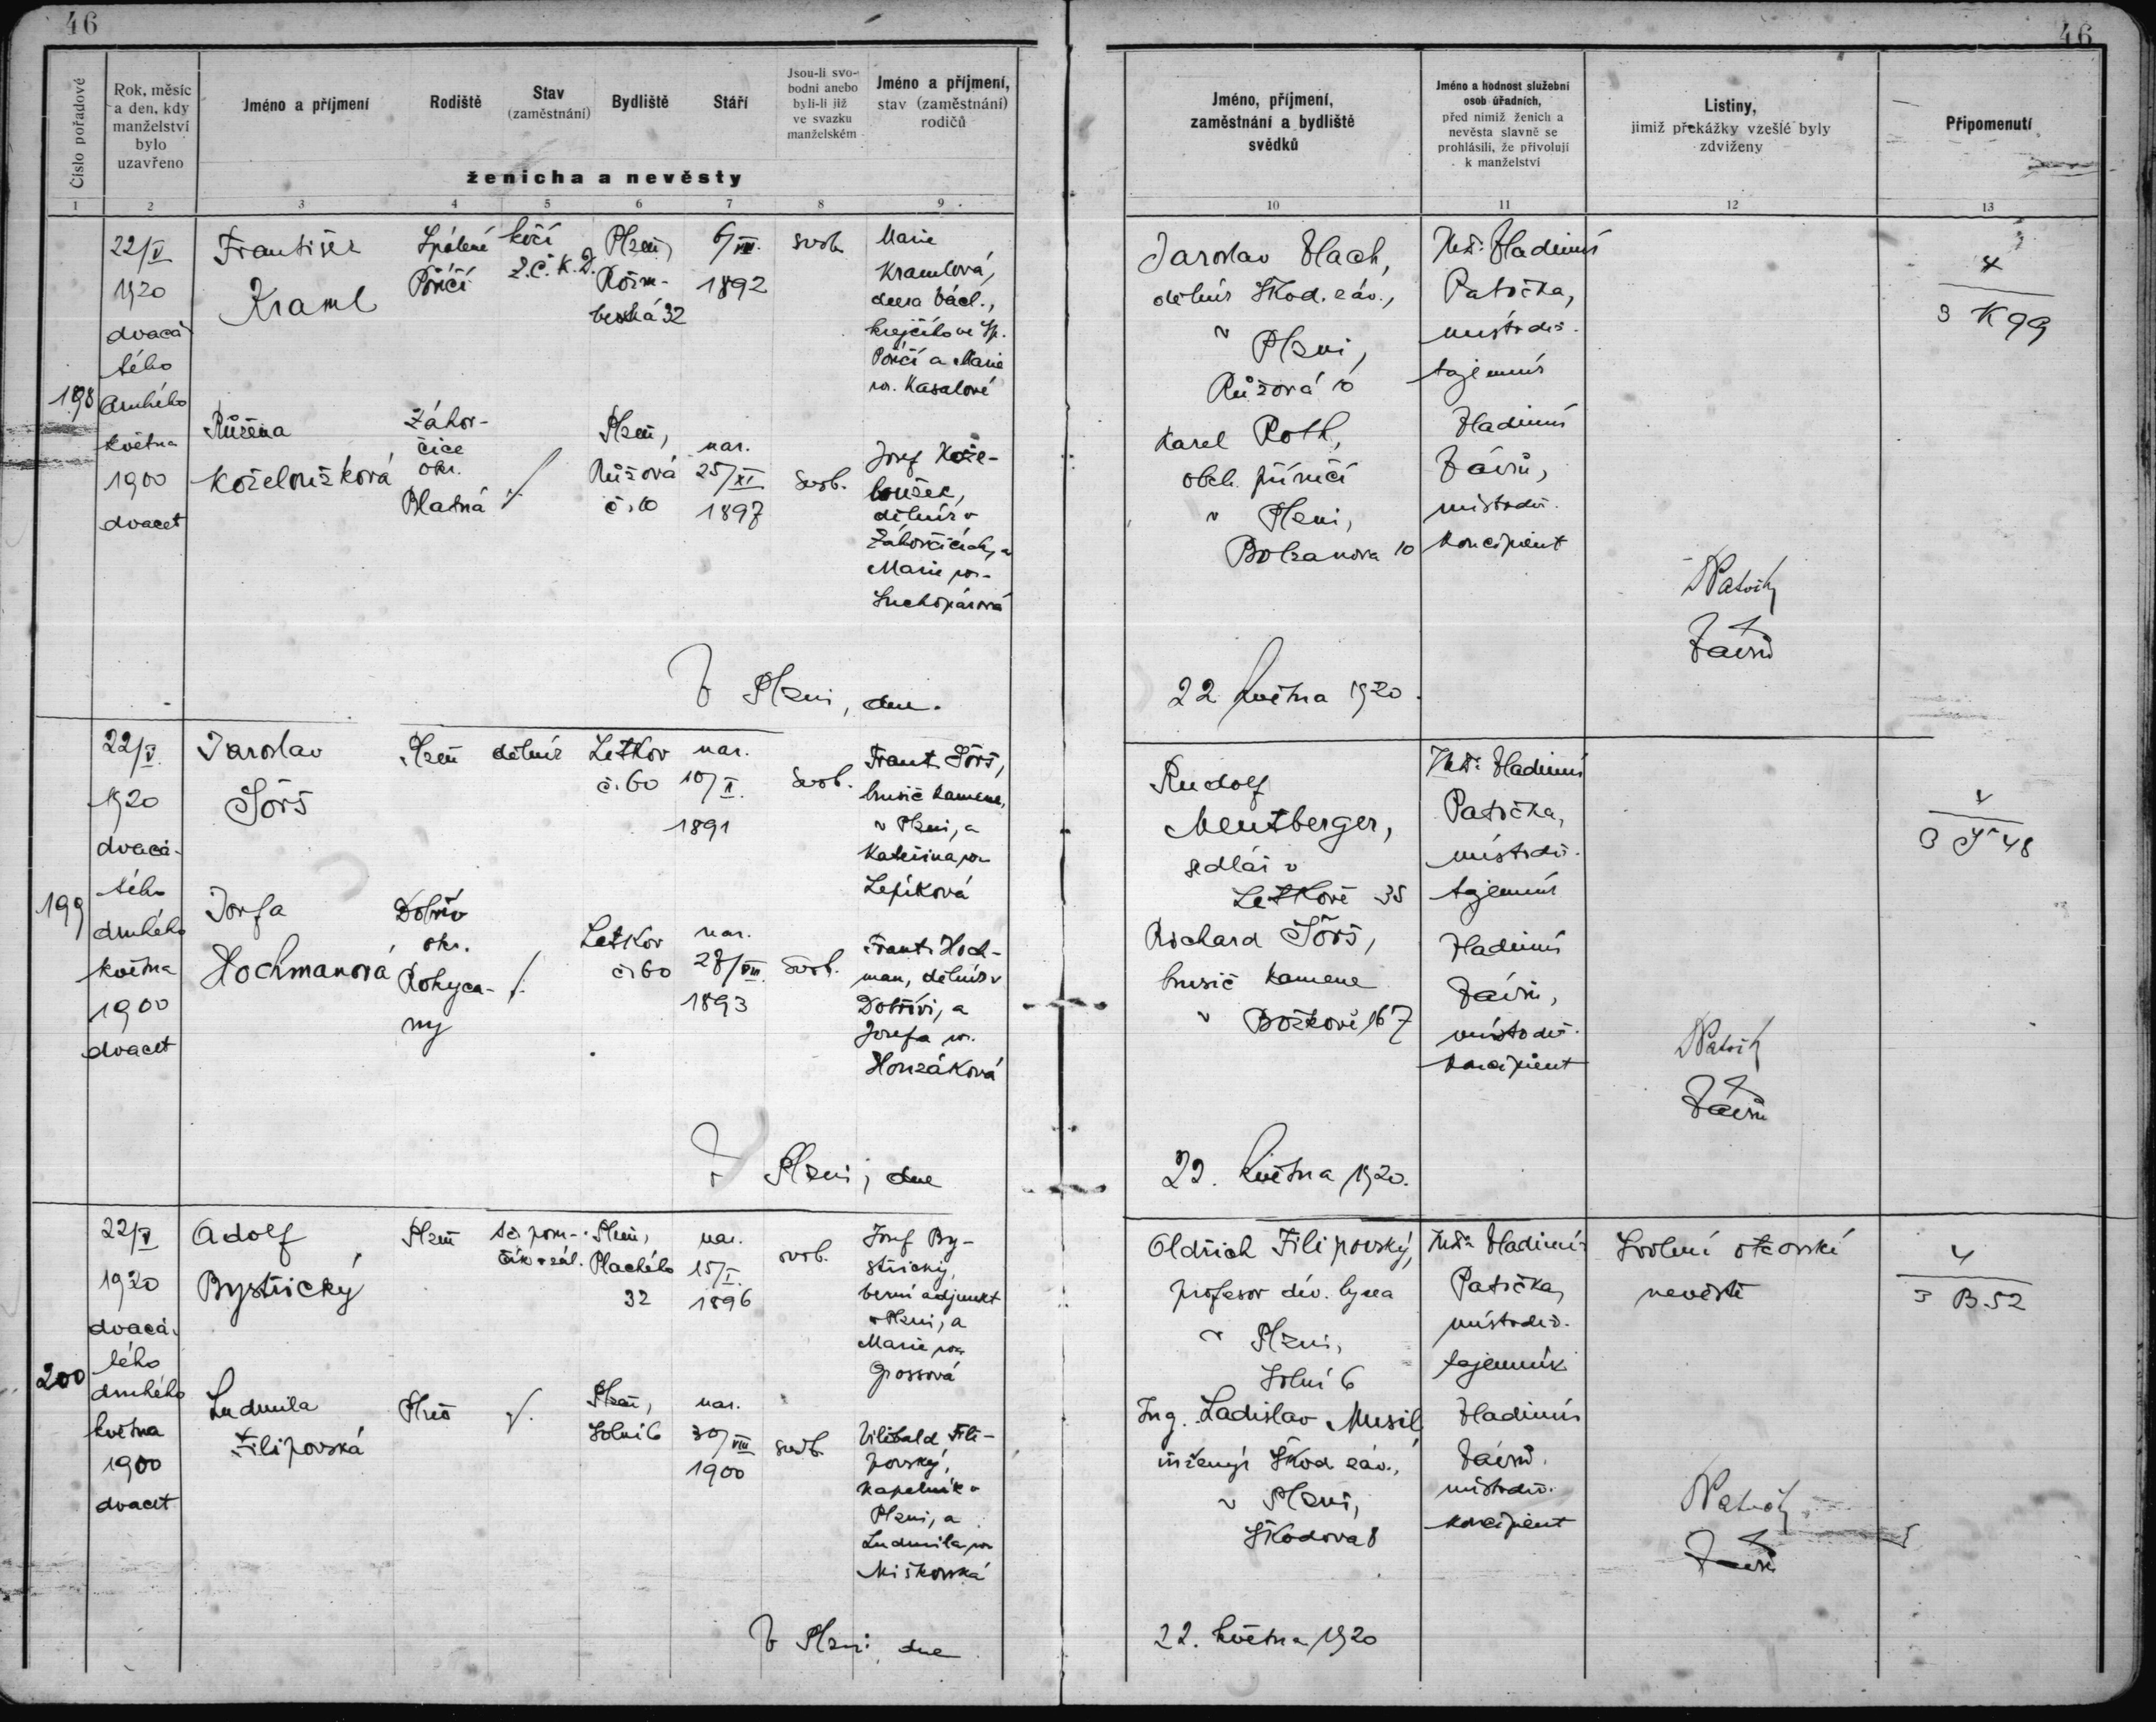 46
46
Číslo pořadové
Rok, měsíc
a den, kdy
manželství
bylo
uzavřeno
Jméno a příjmení
Rodiště
Stav
(zaměstnání)
Bydliště
Stáří
Jsou-li svo-
bodni anebo
byli-li již
ve svazku
manželském
Jméno a příjmení,
stav (zaměstnání)
rodičů
ženicha a nevěsty
1
2
3
4
5
6
7
8
9
Jméno, příjmení,
zaměstnání a bydliště
svědků
Jméno a hodnost služební
osob úřadních,
před nimiž ženich a
nevěsta slavně se
prohlásili, že přivolují
k manželství
Listiny,
jimiž překážky vzešlé byly
zdviženy
Připomenutí
10
11
12
13
198
22/V
1920
dvacá-
tého
druhého
května
1900
dvacet
František
Kraml
Spálené
Poříčí
kočí
Plzeň,
6/VIII.
1892
svob
Marie
Kramlová,
dcera Václ.,
krejčího ve Sp.
Poříčí a Marie
roz. Kasalové
Růžena
Koželoužková
Záhor-
čice
okr.
Blatná
Plzeň,
Růžová
č. 10
nar.
25/XI
1897
svob.
Josef Kože-
loužek,
dělník v
Záhorčicích, a
Marie roz.
Suchopárová
V Plzni, dne
Jaroslav Vlach,
dělník Škod. záv.,
v Plzni,
Růžová 10
Karel Roth,
obch. příručí
v Plzni,
Bolzanova 10
Vladimír
Patočka,
místodrž.
tajemník
Vladimír
Závrů,
místodrž.
koncipient
Patočk
Závrů
22 května 1920.
4
3 K 99
199
22/V.
1920
dvacá-
tého
druhého
května
1900
dvacet
Jaroslav
Šörš
Plzeň
dělník
Letkov
č. 60
nar.
10/II.
1891
svob.
Frant. Šörš,
brusič kamene,
v Plzni, a
Kateřina roz.
Lepíková
Josefa
Hochmanová
Dobřív
okr.
Rokyca-
ny
Letkov
č. 60
nar.
28/VIII.
1893
svob.
Frant. Hoch-
man, dělník v
Dobřívi, a
Josefa roz.
Honzáková
V Plzni, dne
Rudolf
Mentberger,
sedlář v
Letkově 35
Richard Šörš,
brusič kamene
v Božkově 167
Vladimír
Patočka,
místodrž.
tajemník
Vladimír
Závrů,
místodrž.
koncipient
Patočk
Závrů
22. května 1920.
4
3 Š 48
200
22/V
1920
dvacá-
tého
druhého
května
1900
dvacet
Adolf
Bystřický
Plzeň
Plzeň,
Plachého
32
nar.
15/I.
1896
svob.
Josef By-
střický,
berní adjunkt
v Plzni, a
Marie roz.
Grossová
Ludmila
Filipovská
Plzeň
Plzeň,
Solní 6
nar.
30/VIII
1900
svob.
Vilibald Fili-
povský,
kapelník v
Plzni, a
Ludmila roz
Miškovská
V Plzni, dne
Oldřich Filipovský,
profesor dív. lycea
v Plzni,
Solní 6
Ing. Ladislav Musil
inženýr Škod. záv.,
v Plzni,
Škodova 8
Vladimír
Patočka,
místodrž.
tajemník
Vladimír
Závrů.
místodrž.
koncipient
Svolení otcovské
nevěstě
Patočk
Závrů
22. května 1920
4
3 B 52